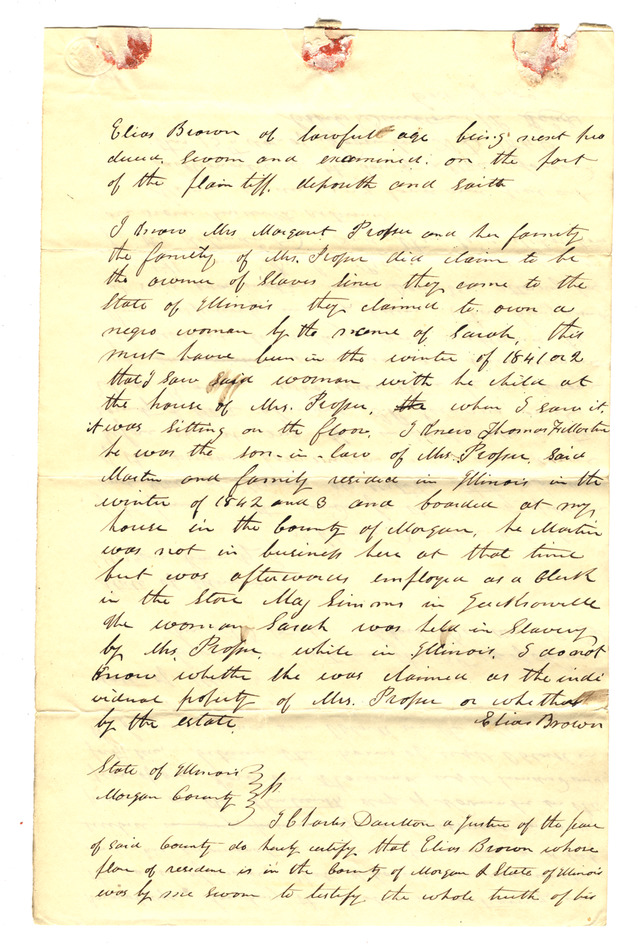 Elias Brown of lawful age being next pro
duced, sworn and examined. on the part
of the plaintiff. deposeth and saith
I know Mrs Margaret Prosser and her family
the family of Mrs. Prosser did claim to be
the owner of Slaves since they came to the
State of Illinois they claimed to own a
negro woman by the name of Sarah, this
must have been in the winter of 1841 or 2
that I saw said woman with he child at
the house of Mrs. Prosser, the when I saw it.
it was sitting on the floor. I knew Thomas
he was the son-in-law of Mrs. Prosser. Said
Martin and family resided in Illinois in the
winter of 1842 and 3 and boarded at my
house in the County of Morgan, he Martin
was not in business here at that time
but was afterwards employed as a Clerk
in the Store Maj Simms in Jacksonville
The woman Sarah was held in Slavery
by Mrs. Prosser. while in Illinois. I do not
know whethe she was claimed as the indi
vidual property of Mrs. Prosser or whether
by the estate.
Elias Brown
State of Illinois
Morgan County } ss
I Charles Daulton a Justice of the peace
of said County do hereby certify that Elias Brown whose
place of residence is in the County of Morgan & State of Illinois
was by me sworn to testify the whole truth of his